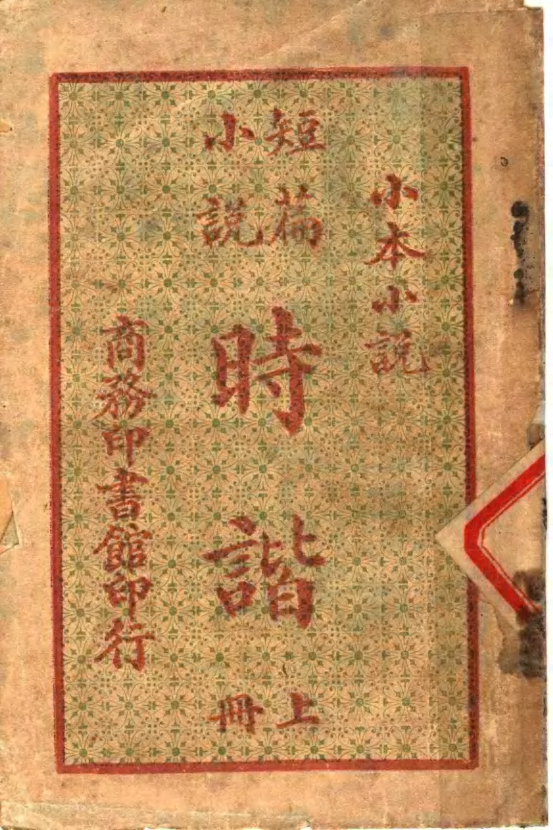 小本小説
短篇小説
時諧
上冊
商務印書館印行